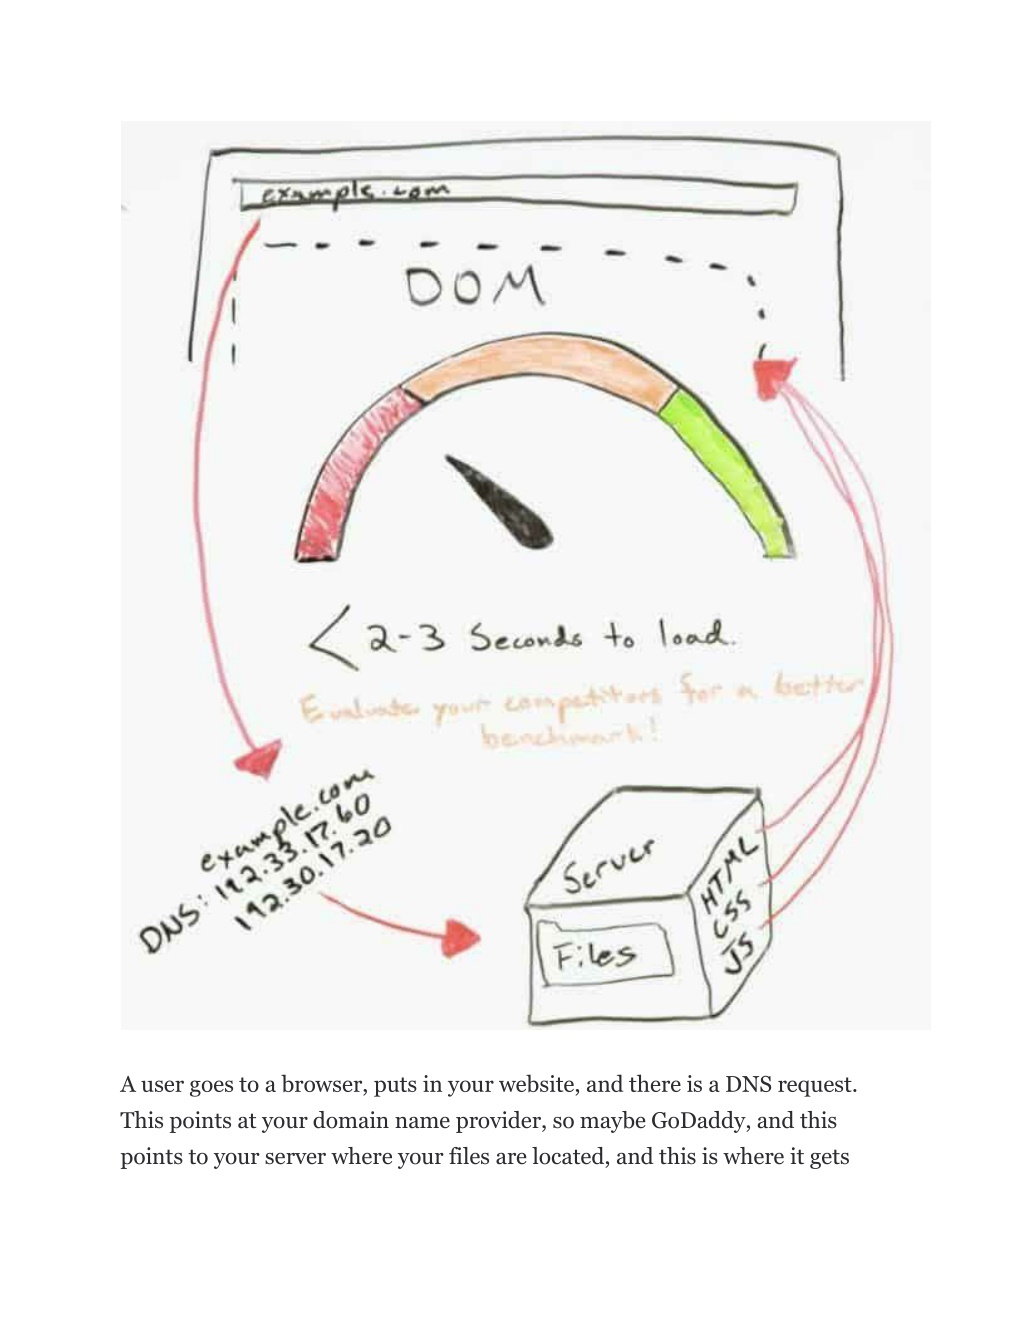 example.com
DOM
< 2-3 Seconds to load.
Evaluate your competitors for a better
benchmark!
example.com
DNS: 192.33.17.60
192.30.17.20
Server
Files
HTML
CSS
JS
A user goes to a browser, puts in your website, and there is a DNS request.
This points at your domain name provider, so maybe GoDaddy, and this
points to your server where your files are located, and this is where it gets